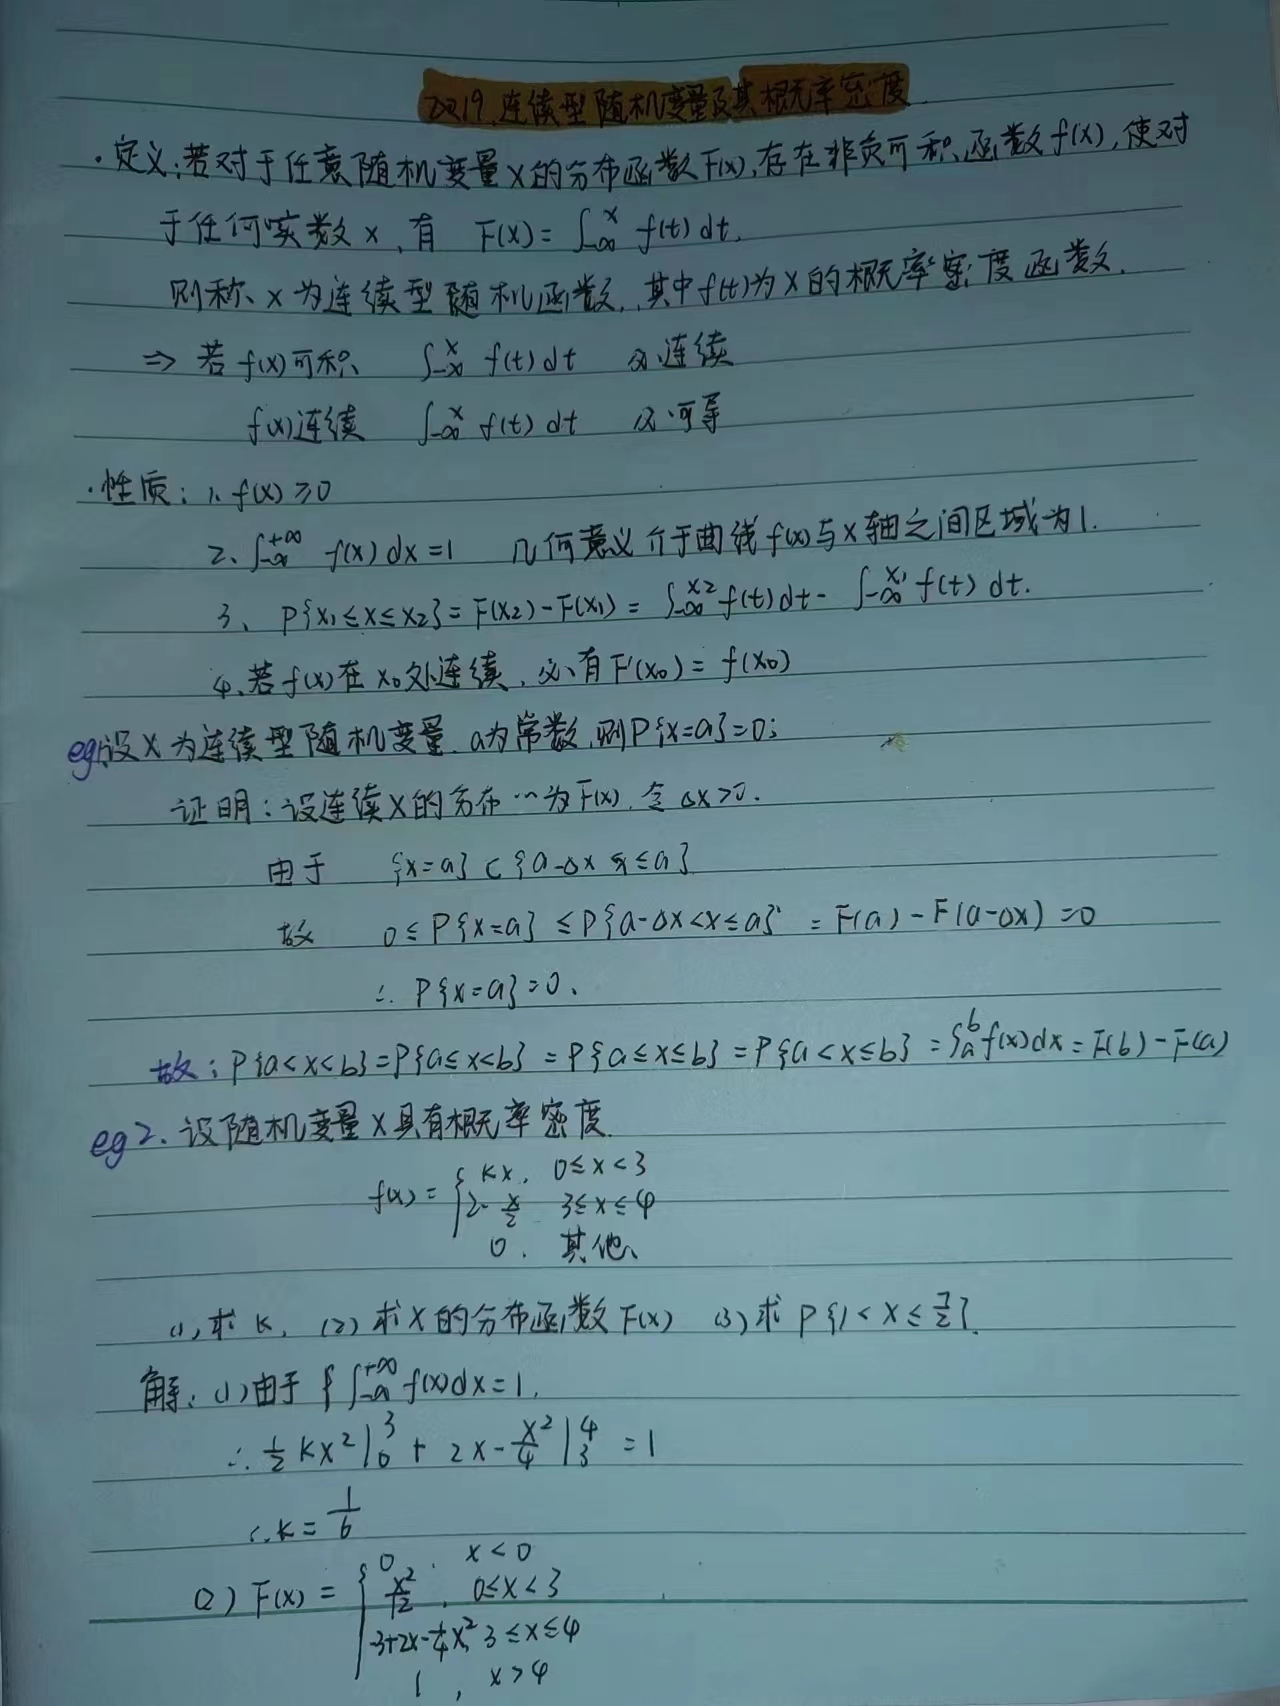 2.2.19.连续型随机变量及其概率密度
·定义:若对于任意随机变量X的分布函数F(x),存在非负可积函数f(x),使对
于任何实数x,有 F(x)=∫_{-∞}^{x} f(t)dt,
则称x为连续型随机函数,其中f(t)为X的概率密度函数.
⇒ 若f(x)可积 ∫_{-∞}^{x} f(t)dt 必连续
f(x)连续 ∫_{-∞}^{x} f(t)dt 必可导
·性质:1.f(x)≥0
2、∫_{-∞}^{+∞} f(x)dx=1 几何意义介于曲线f(x)与x轴之间区域为1.
3、P{x₁≤x≤x₂}=F(x₂)-F(x₁)=∫_{-∞}^{x₂}f(t)dt-∫_{-∞}^{x₁}f(t)dt.
4、若f(x)在x₀处连续,必有F'(x₀)=f(x₀)
eg1.设X为连续型随机变量.a为常数,则P{x=a}=0;
证明:设连续X的分布…为F(x).令△x>0.
由于 {x=a}⊂{a-△x<x≤a}
故 0≤P{x=a}≤P{a-△x<x≤a}=F(a)-F(a-△x)=0
∴P{x=a}=0.
故:P{a<x<b}=P{a≤x<b}=P{a≤x≤b}=P{a<x≤b}=∫_{a}^{b}f(x)dx=F(b)-F(a)
eg2.设随机变量X具有概率密度.
f(x)={ kx, 0≤x<3
2-x/2 3≤x≤4
0. 其他、
(1)求k, (2)求X的分布函数F(x) (3)求P{1<x≤7/2}.
解:(1)由于∫_{-∞}^{+∞}f(x)dx=1,
∴1/2kx²|_{0}^{3}+2x-x²/4|_{3}^{4}=1
∴k=1/6
(2)F(x)={ 0, x<0
x²/12, 0≤x<3
-3+2x-1/4x², 3≤x≤4
1, x>4